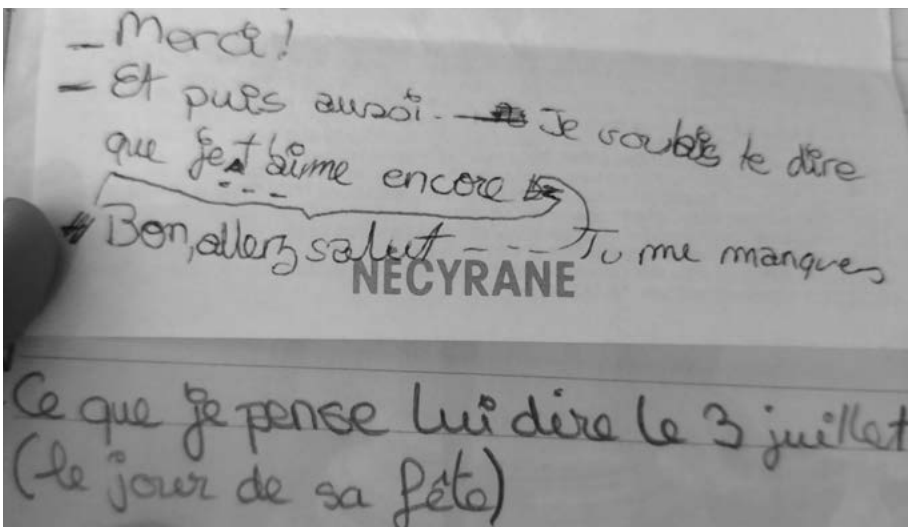 – Merci !
– Et puis aussi. Je voulais te dire
que je t'aime encore
Bon, allez salut - - - Tu me manques
NECYRANE
Ce que je pense lui dire le 3 juillet
(le jour de sa fête)